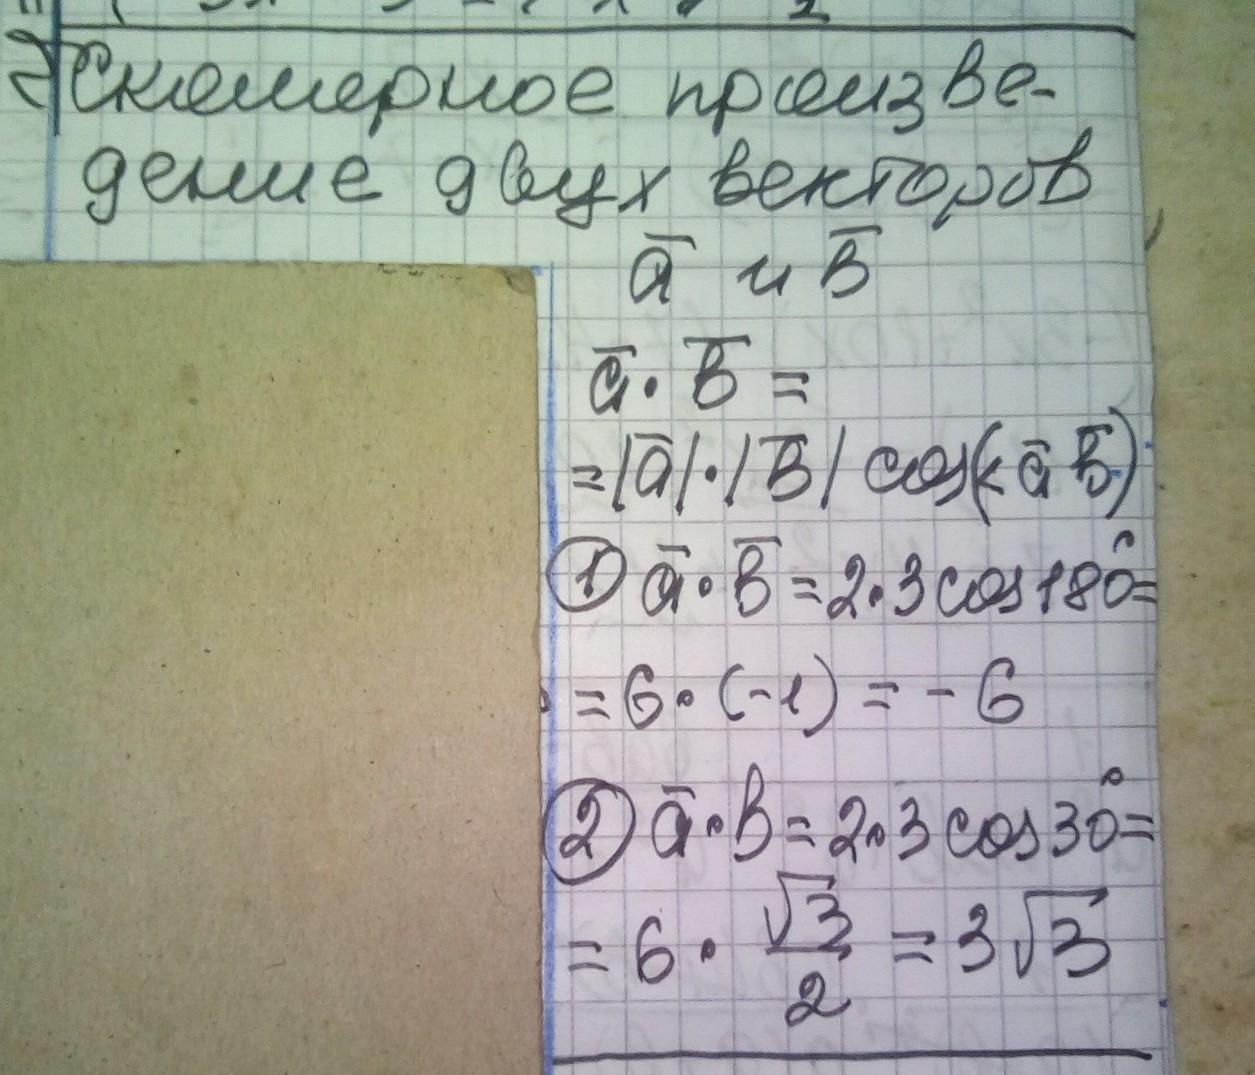 Скалярное произве-
дение двух векторов
a̅ и b̅
a̅ · b̅ =
= |a̅| · |b̅| cos(∠ a̅ b̅)
① a̅ · b̅ = 2 · 3 cos 180° =
= 6 · (-1) = - 6
② a̅ · b = 2 · 3 cos 30° =
= 6 · √3/2 = 3√3